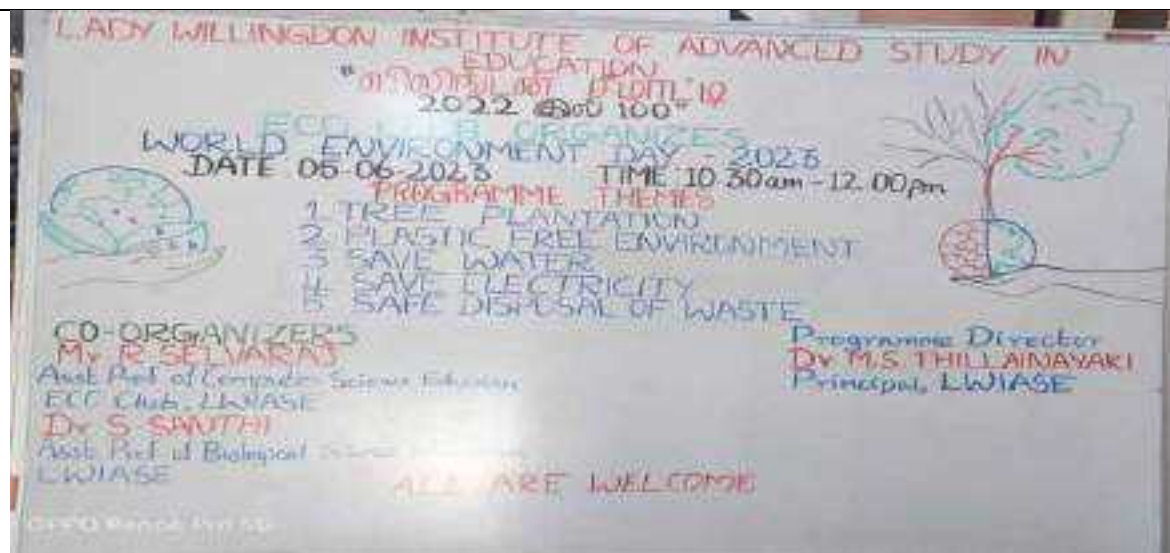 LADY WILLINGDON INSTITUTE OF ADVANCED STUDY IN
EDUCATION
2022 100"
ECO CLUB ORGANIZES
WORLD ENVIRONMENT DAY - 2023
DATE 05-06-2023 TIME 10.30am-12.00pm
PROGRAMME THEMES
1 TREE PLANTATION
2 PLASTIC FREE ENVIRONMENT
3 SAVE WATER
4 SAVE ELECTRICITY
5 SAFE DISPOSAL OF WASTE
CO-ORGANIZERS
Mr R SELVARAJ
Asst Prof of Computer Science Education
ECC Club, LWIASE
Dr S SANTHI
Asst Prof of Biological Science
LWIASE
Programme Director
Dr M.S. THILLAINAYAKI
Principal, LWIASE
ALL ARE WELCOME
OPPO Reno8 Pro 5G